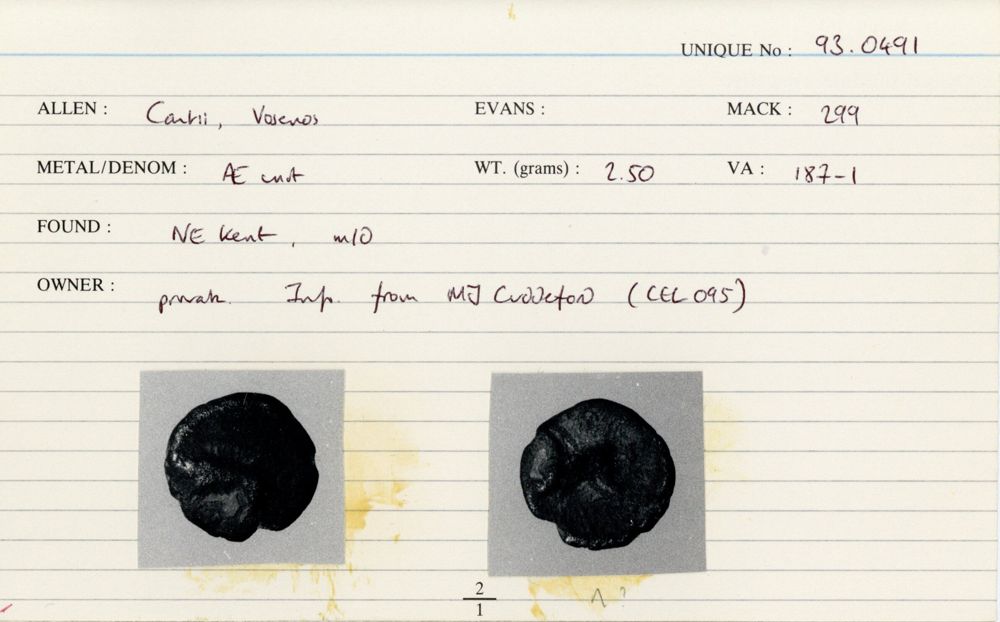 UNIQUE No : 93.0491
ALLEN : Cantii, Vosenos EVANS : MACK : 299
METAL/DENOM : Æ unit WT. (grams) : 2.50 VA : 187-1
FOUND : NE Kent, m/D
OWNER : private. Inf. from MJ Cuddeford (CEL 095)
2
1
^ ?